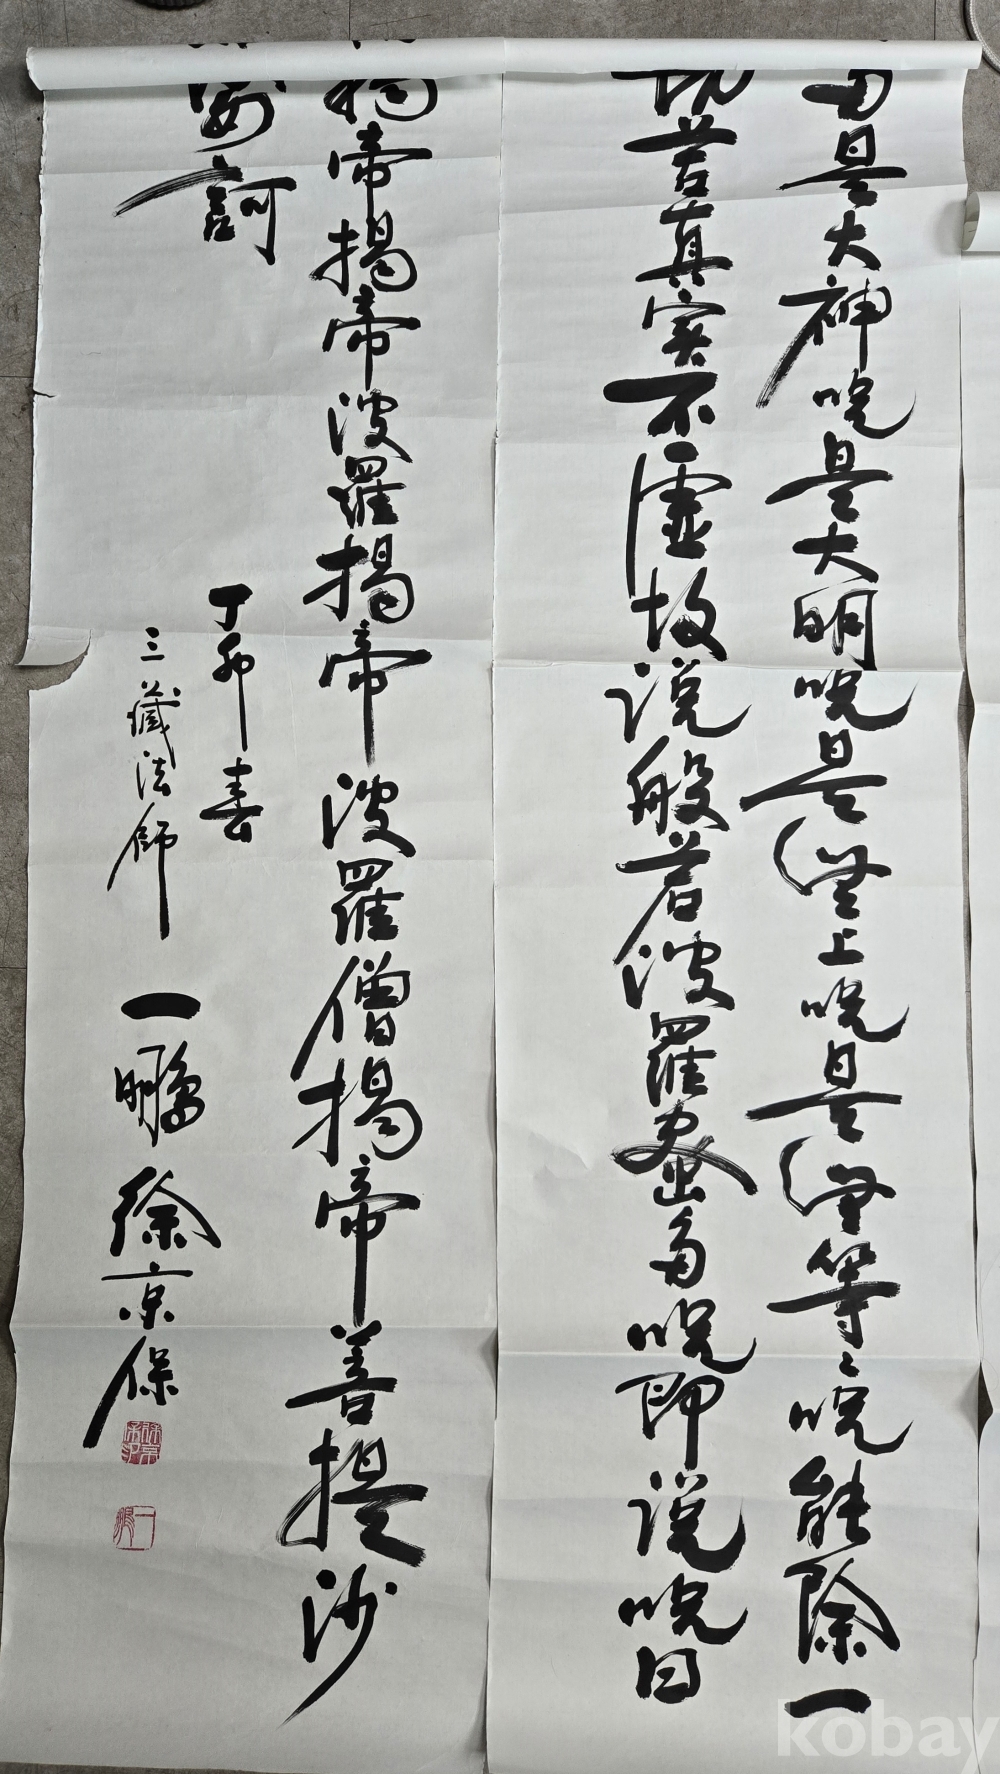 多是大神咒是大明咒是無上咒是無等々咒能除一
切苦真實不虛故說般若波羅蜜多咒即說咒曰
揭帝揭帝波羅揭帝波羅僧揭帝菩提沙
婆訶
丁卯春
三藏法師 一鵬 徐京保
一鵬
kobay